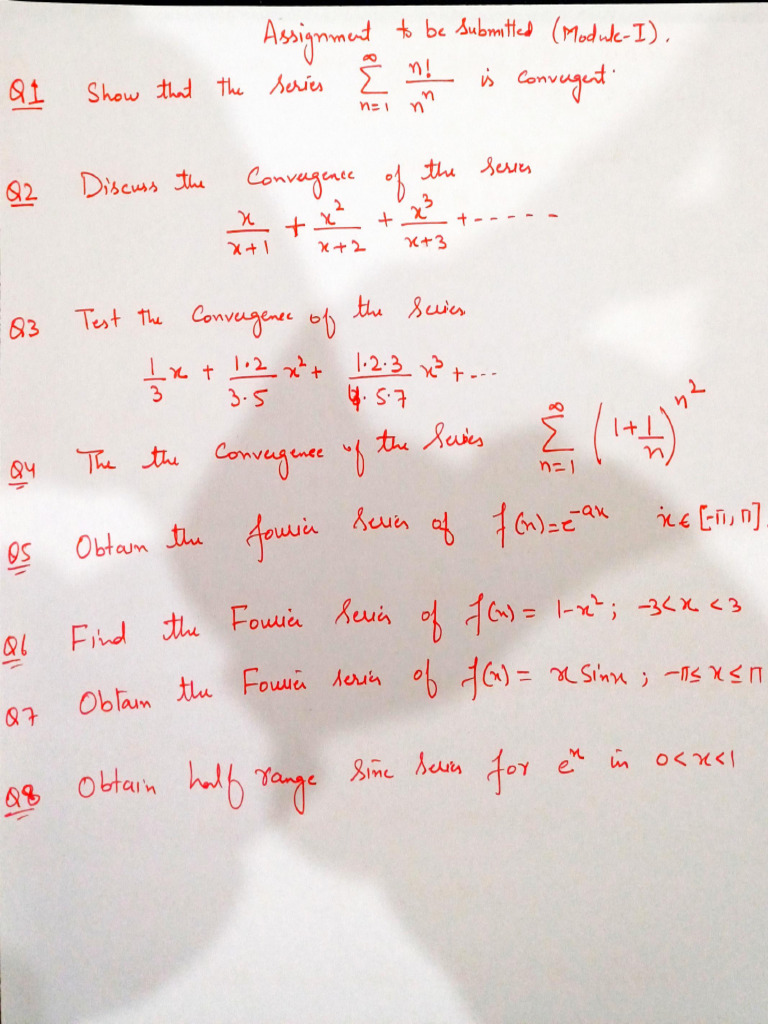 Assignment to be Submitted (Module-I).
Q1 Show that the series ∑_{n=1}^{∞} n!/n^n is convergent.
Q2 Discuss the Convergence of the series
x/(x+1) + x²/(x+2) + x³/(x+3) + ------
Q3 Test the Convergence of the Series
1/3 x + 1·2/3·5 x² + 1·2·3/3·5·7 x³ + ---
Q4 The the Convergence of the Series ∑_{n=1}^{∞} (1+1/n)^{n²}
Q5 Obtain the fourier Series of f(x)=e^{-ax} x ∈ [-π, π].
Q6 Find the Fourier Series of f(x) = 1-x²; -3<x<3
Q7 Obtain the Fourier series of f(x) = x Sinx ; -π≤x≤π
Q8 Obtain half range Sine Series for e^x in 0<x<1